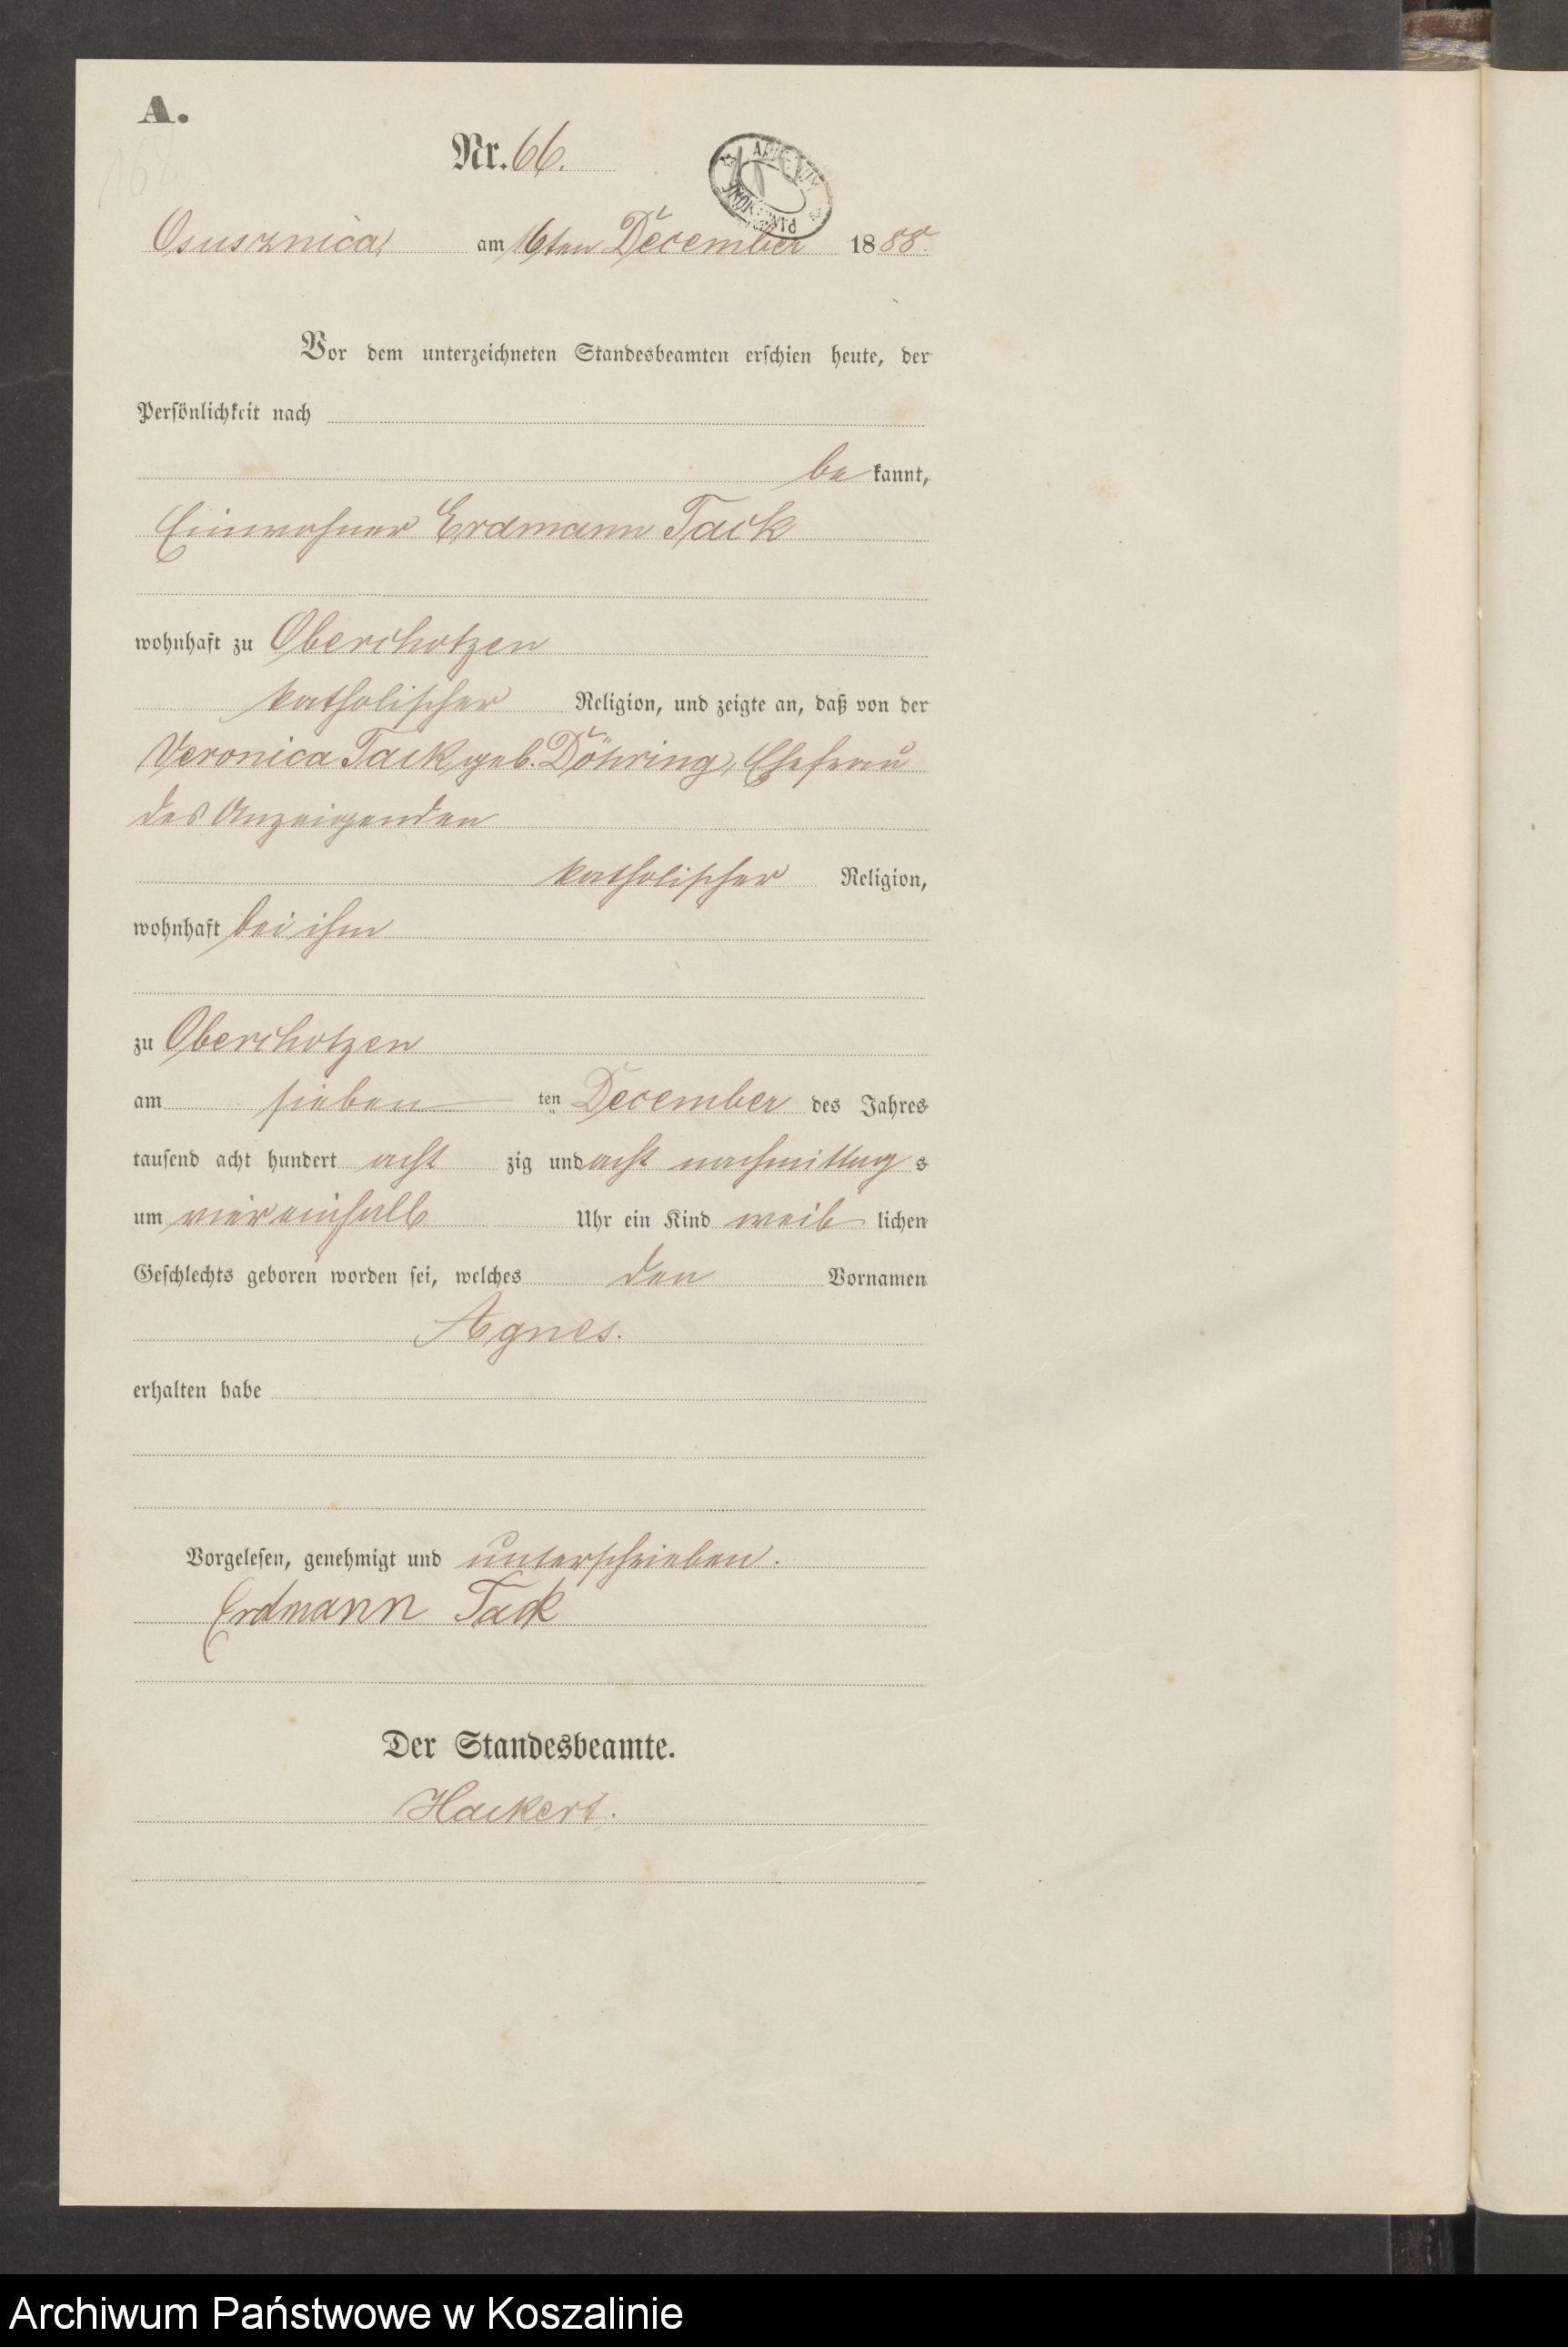 A.
Nr. 66.
Osusznica, am 16ten December 1888.
Vor dem unterzeichneten Standesbeamten erschien heute, der
Persönlichkeit nach
be kannt,
Einwohner Erdmann Tack
wohnhaft zu Oberchotzen
katholischer Religion, und zeigte an, daß von der
Veronica Tack geb. Döhring, Ehefrau
des Anzeigenden
katholischer Religion,
wohnhaft bei ihm
zu Oberchotzen
am sieben ten December des Jahres
tausend acht hundert acht zig und acht nachmittag s
um vier einhalb Uhr ein Kind weib lichen
Geschlechts geboren worden sei, welches den Vornamen
Agnes.
erhalten habe
Vorgelesen, genehmigt und unterschrieben.
Erdmann Tack
Der Standesbeamte.
Hackert.
Archiwum Państwowe w Koszalinie